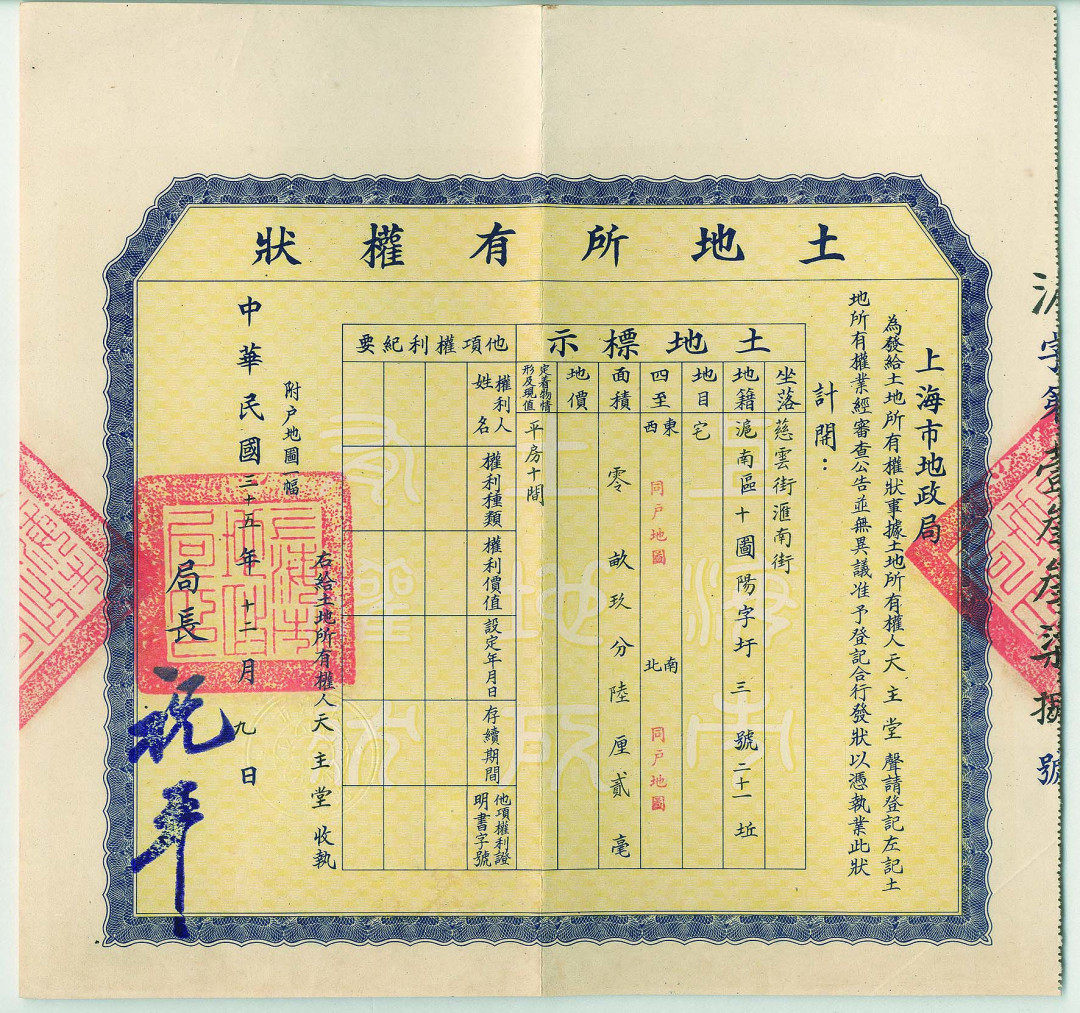 土地所有權狀
滬字第壹叁叁柒號
上海市地政局
為發給土地所有權狀事據土地所有權人天主堂聲請登記左記土
地所有權業經審查公告並無異議准予登記合行發狀以憑執業此狀
計開：
土地標示
坐落
慈雲街滙南街
地籍
滬南區十圖陽字圩三號二十一坵
地目
宅
四至
東
西
同戶地圖
南
北
同戶地圖
面積
零畝玖分陸厘貳毫
地價
定着物情形及現值
平房十間
他項權利紀要
權利人姓名
權利種類
權利價值
設定年月日
存續期間
他項權利證明書字號
右給土地所有權人天主堂收執
附户地圖一幅
中華民國二十五年十二月九日
局長
上海市土地所有權狀